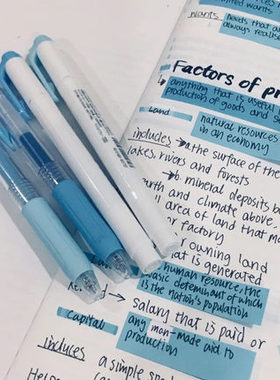 wants
needs that a
always realise
Factors of pr
anything that is useful
production of goods and s
Land
natural resources
in an economy
includes → the surface of the
lakes, rivers and forests
↳ mineral deposits b
earth and climate above,
all area of land that m
or factory
or owning land
that is generated
human resource, the
basic determinant of which
is the nation's population
→ salary that is paid or
Capital
any man-made aid to
production
includes
a simple